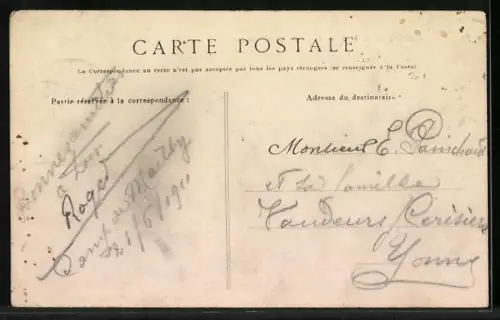 CARTE POSTALE
La Correspondance au recto n'est pas acceptée par tous les pays étrangers (se renseigner à la Poste)
Partie réservée à la correspondance:
Bonnes amitiés
à tous
Roger
Camp de Mailly
Adresse du destinataire
Monsieur E.
et sa famille
Vaudeurs / Cerisiers
Yonne